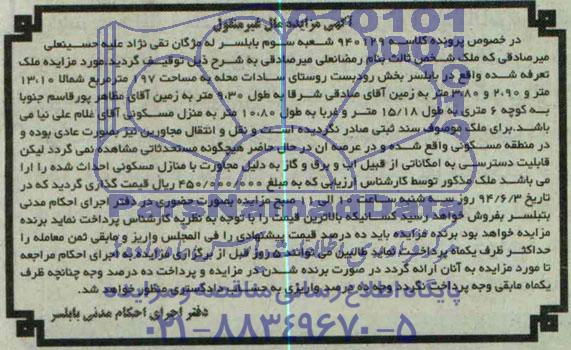 آگهی مزایده مال غیرمنقول
در خصوص پرونده کلاسه ۹۴۰۱۲۹ شعبه سوم بابلسر له مژگان تقی نژاد علیه حسینعلی
میرصادقی که ملک شخص ثالث بنام رمضانعلی میرصادقی به شرح ذیل توقیف گردید.مورد مزایده ملک
تعرفه شده واقع در بابلسر بخش رودبست روستای سادات محله به مساحت ۱۹۷ مترمربع شمالا ۱۳،۱۰
متر و ۲،۹۰ و ۳،۸۰ متر به زمین آقای صادقی شرقا به طول ۹،۳۰ متر به زمین آقای مظاهر پورقاسم جنوبا
به کوچه ۶ متری به طول ۱۵/۱۸ متر و غربا به طول ۱۰،۸۰ متر به منزل مسکونی آقای غلام علی نیا می
باشد.برای ملک موصوف سند ثبتی صادر نگردیده است و نقل و انتقال مجاورین نیز بصورت عادی بوده و
در منطقه مسکونی واقع شده و در عرصه ان در حال حاضر هیچگونه مستحدثاتی مشاهده نمی گردد لیکن
قابلیت دسترسی به امکاناتی از قبیل آب و برق و گاز به دلیل مجاورت با منازل مسکونی احداث شده را ارا
می باشد ملک مذکور توسط کارشناس ارزیابی که به مبلغ ۴۵۰/۰۰۰/۰۰۰ ریال قیمت گذاری گردید که در
تاریخ ۹۴/۶/۳ روز سه شنبه ساعت ۱۰ الی ۱۱ صبح مزایده بصورت حضوری در دفتر اجرای احکام مدنی
بابلسر بفروش خواهد رسید کسانیکه بالاترین قیمت را با توجه به نظریه کارشناس پرداخت نماید برنده
مزایده خواهد بود برنده مزایده باید ده درصد قیمت پیشنهادی را فی المجلس واریز و مابقی ثمن معامله را
حداکثر ظرف یکماه پرداخت نماید طالبین می توانند ۵ روز قبل از برگزاری مزایده به اجرای احکام مراجعه
تا مورد مزایده به آنان ارائه گردد در صورت برنده شدن در مزایده و پرداخت ده درصد وجه چنانچه ظرف
یکماه مابقی وجه پرداخت نگردد وجه ده درصد واریزی به حساب دادگستری منظور خواهد شد.
دفتر اجرای احکام مدنی بابلسر
پایگاه اطلاع رسانی مناقصه و مزایده
۰۲۱-۸۸۳۴۹۶۷۰-۵